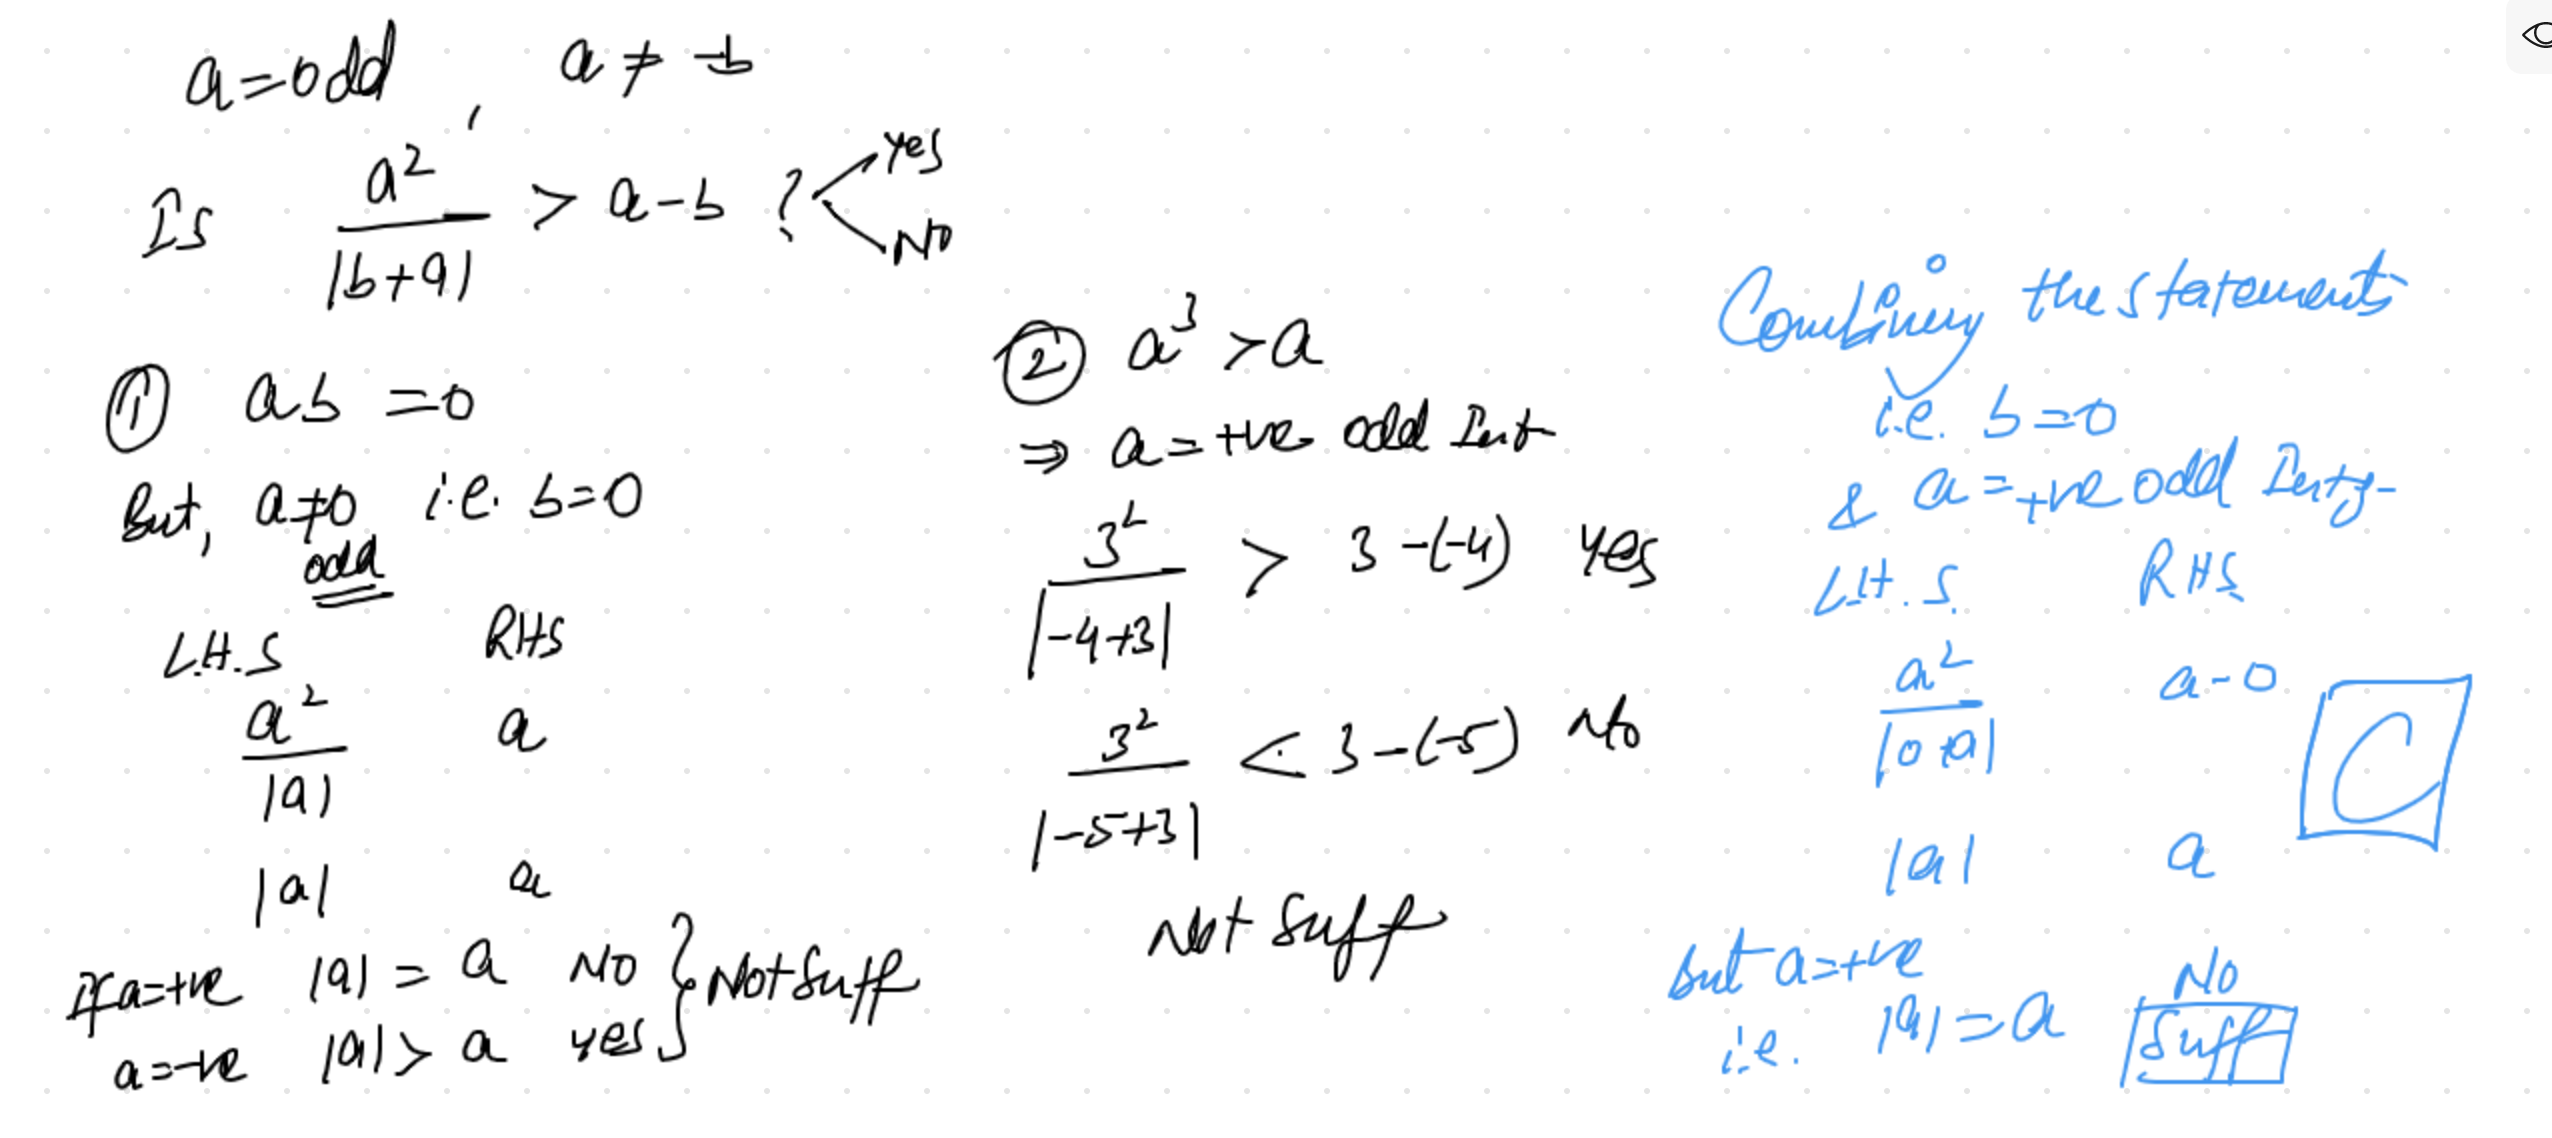 a = odd , a ≠ -b
Is a² / |b+a| > a - b ? Yes
No
① ab = 0
But, a≠0 i.e. b = 0
odd
L.H.S RHS
a² / |a| a
|a| a
If a=+ve |a| = a NO } Not Suff
a=-ve |a| > a yes
② a³ > a
⇒ a = +ve odd Int
3² / |-4+3| > 3-(-4) Yes
3² / |-5+3| < 3-(-5) No
Not Suff
Combining the statements
i.e. b = 0
& a = +ve odd Intg.
L.H.S. RHS
a² / |0+a| a - 0
|a| a
C
But a=+ve
i.e. |a| = a No
Suff